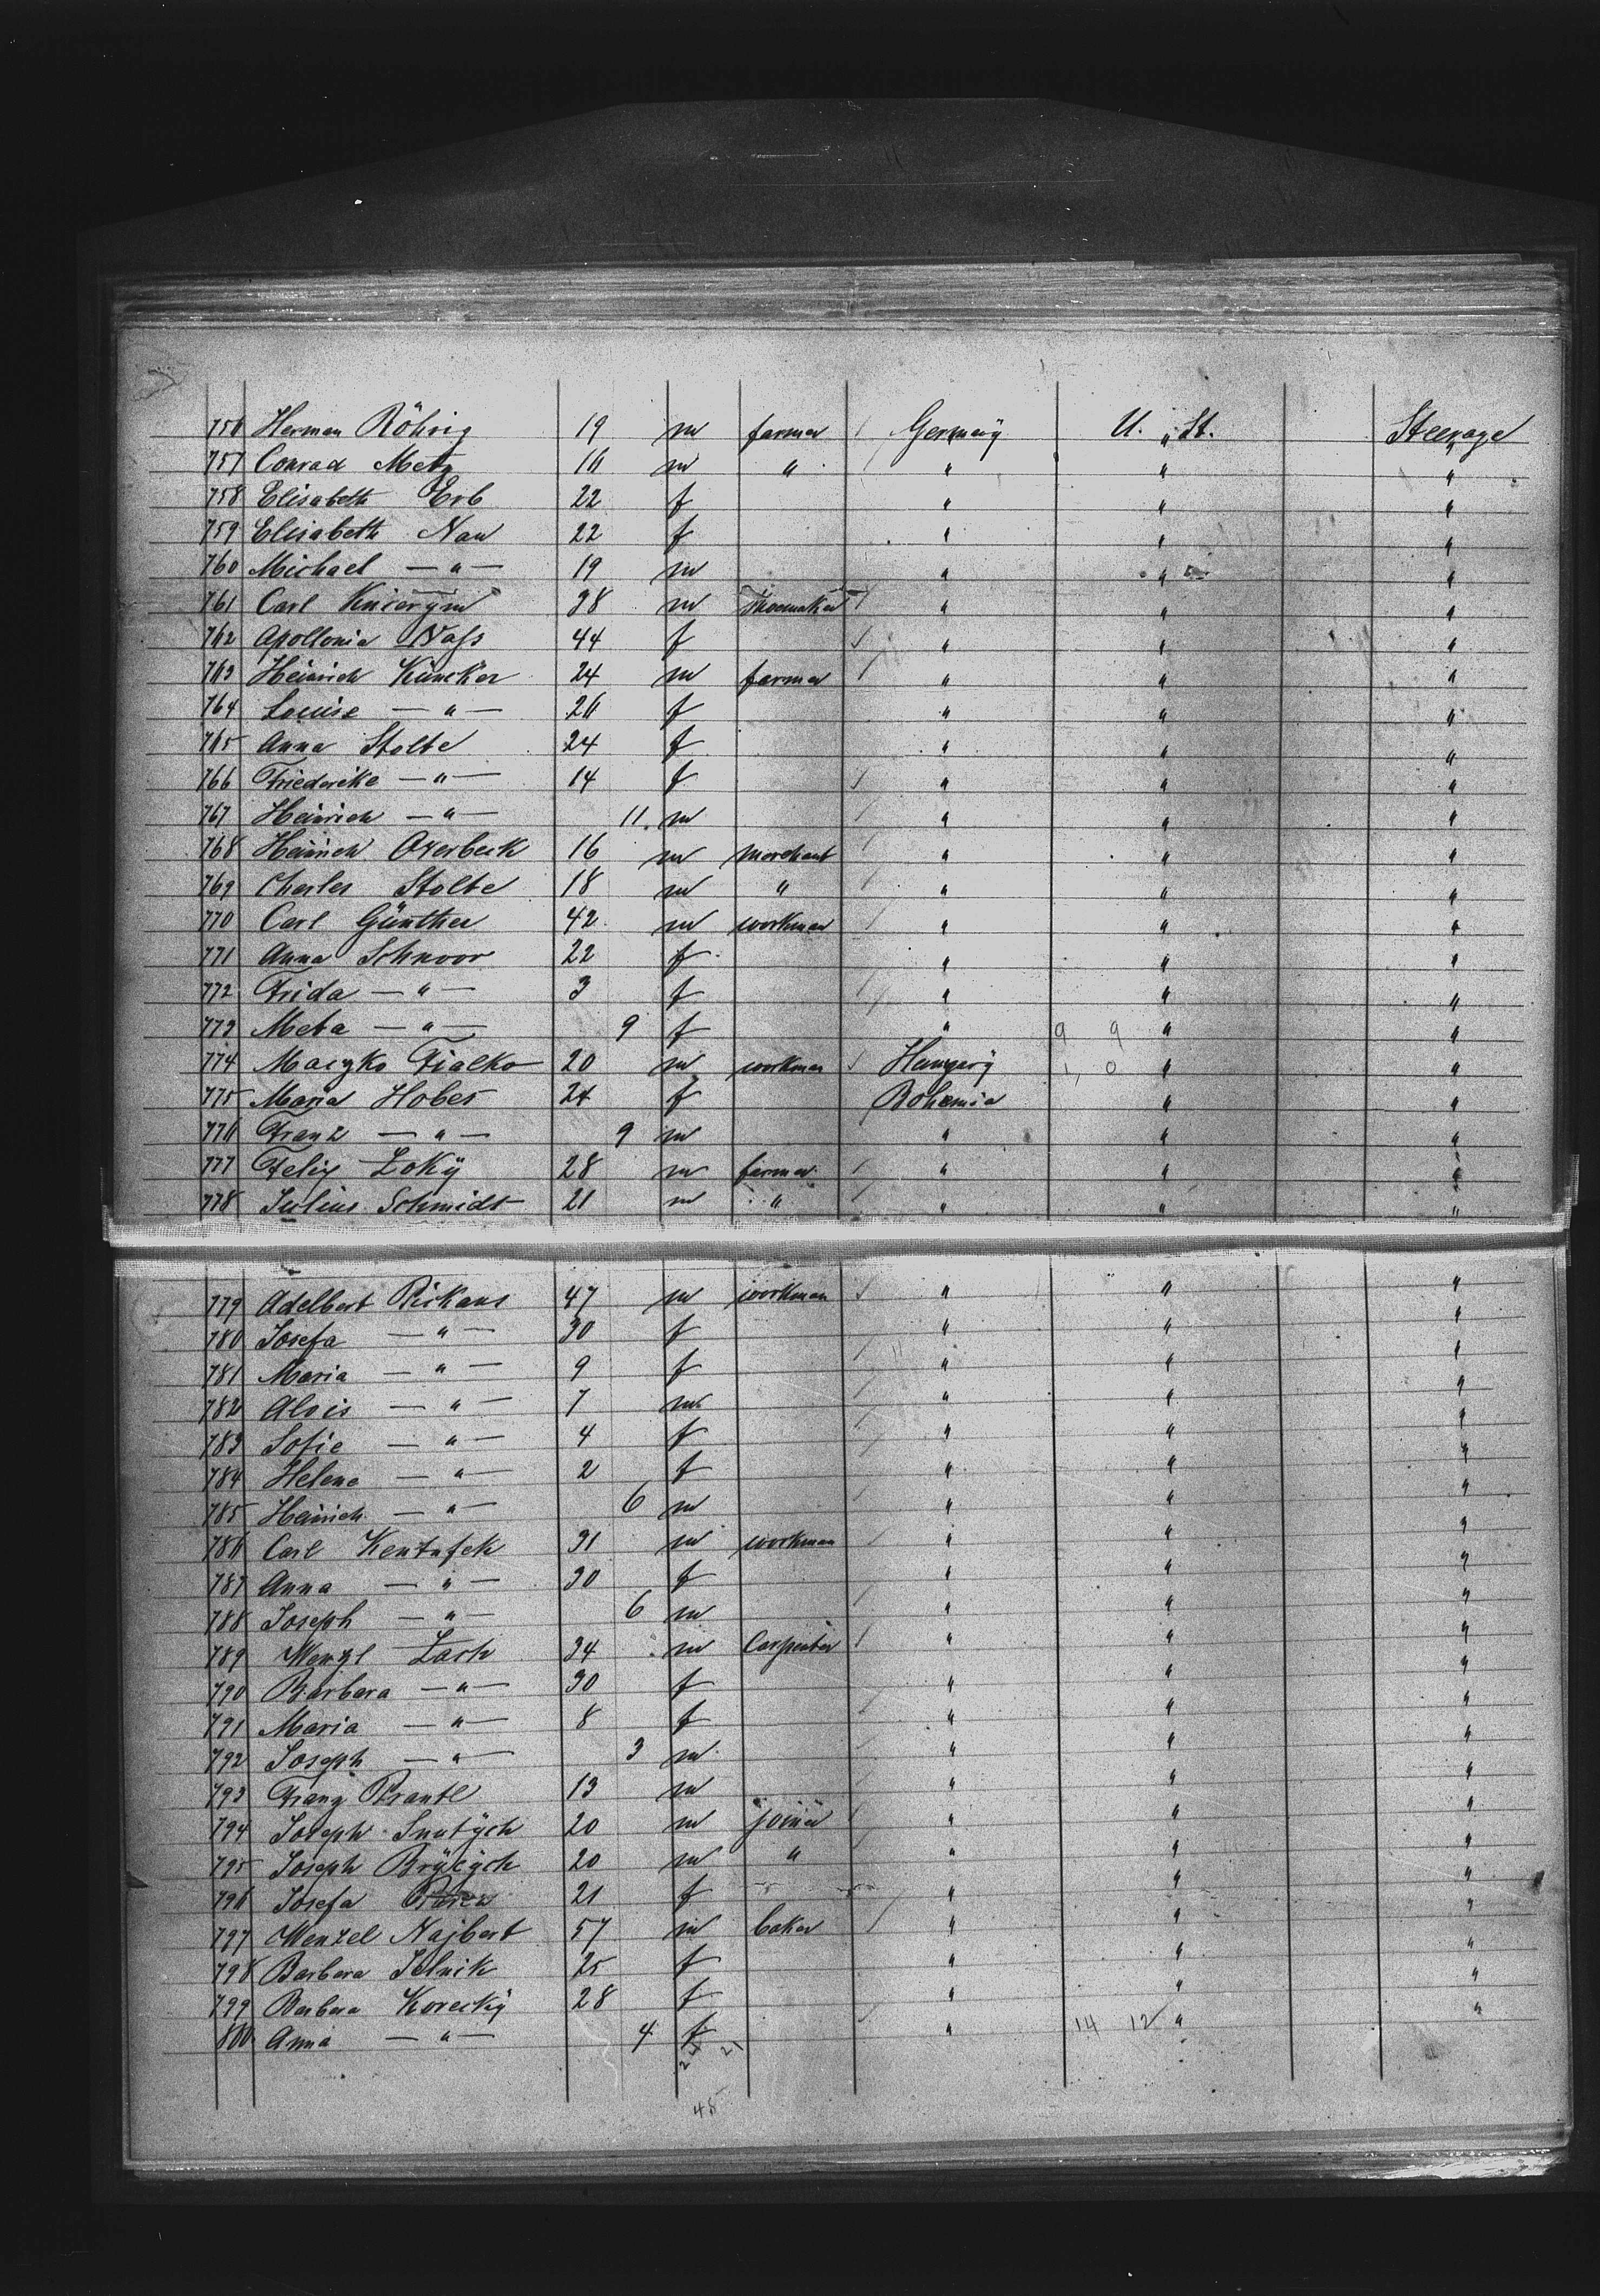 756 Herman Röhrig 19 m farmer Germany U. St. Steerage
757 Conrad Metz 16 m " " " "
758 Elisabeth Erb 22 f " " "
759 Elisabeth Nau 22 f " " "
760 Michael — " — 19 m " " "
761 Carl Knierym 38 m Shoemaker " " "
762 Apollonia Nass 44 f " " "
763 Heinrich Küncker 24 m farmer " " "
764 Louise — " — 26 f " " "
765 Anna Stolte 24 f " " "
766 Friederike — " — 14 f " " "
767 Heinrich — " — 11 m " " "
768 Heinrich Overbeck 16 m merchant " " "
769 Charles Stolte 18 m " " " "
770 Carl Günther 42 m workman " " "
771 Anna Schnoor 22 f " " "
772 Frida — " — 3 f " " "
773 Meta — " — 9 f " 9 9 " "
774 Maczko Fialko 20 m workman Hungary 1, 0 " "
775 Maria Hobes 24 f Bohemia " "
776 Franz — " — 9 m " " "
777 Felix Loký 28 m farmer " " "
778 Julius Schmidt 21 m " " " "
779 Adelbert Pickans 47 m workman " " "
780 Josefa — " — 30 f " " "
781 Maria — " — 9 f " " "
782 Alois — " — 7 m " " "
783 Sofie — " — 4 f " " "
784 Helene — " — 2 f " " "
785 Heinrich — " — 6 m " " "
786 Carl 31 m workman " " "
787 Anna — " — 30 f " " "
788 Joseph — " — 6 m " " "
789 Wenzl Lach 34 m Carpenter " " "
790 Barbara — " — 30 f " " "
791 Maria — " — 8 f " " "
792 Joseph — " — 3 m " " "
793 Franz Brantl 13 m " " "
794 Joseph 20 m joiner " " "
795 Joseph 20 m " " " "
796 Josefa 21 f " " "
797 Wenzel Najbert 57 m baker " " "
798 Barbara 25 f " " "
799 Barbara Korecký 28 f " " "
800 Anna — " — 4 f " 14 12 " "
24 21
45